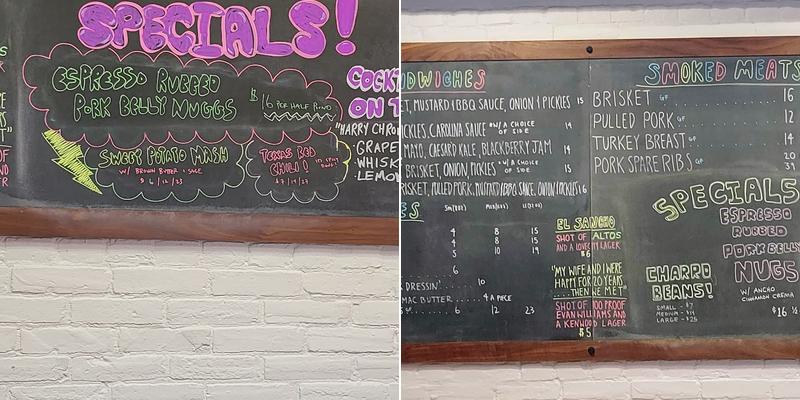 SPECIALS!
ESPRESSO RUBBED
PORK BELLY NUGGS
$16 PER HALF POUND
SWEET POTATO MASH
W/ BROWN BUTTER + SAGE
$ 6 / 12 / 23
TEXAS RED
CHILI!
$7 / 14 / 27
COCKT
ON T
"HARRY CHRO
GRAPE
WHISK
LEMON
DWICHES
ET, MUSTARD & BBQ SAUCE, ONION & PICKLES 15
CKLES, CAROLINA SAUCE *W/ A CHOICE OF SIDE 14
MAYO, CAESARD KALE, BLACKBERRY JAM 14
BRISKET, ONION PICKLES *W/ A CHOICE OF SIDE 15
RISKET, PULLED PORK, MUSTARD & BBQ SAUCE, ONION & PICKLES 16
ES
4 8 15
4 8 15
5 10 19
6
DRESSIN' 10
MAC BUTTER 4 A PIECE
6 12 23
EL SANCHO
SHOT OF ALTOS
AND A LOVECITY LAGER
$6
"MY WIFE AND I WERE
HAPPY FOR 20 YEARS
...THEN WE MET"
SHOT OF 100 PROOF
EVAN WILLIAMS AND
A KENWOOD LAGER
$5
SMOKED MEATS
BRISKET GF 16
PULLED PORK GF 12
TURKEY BREAST GF 14
PORK SPARE RIBS GF 20
SPECIALS
ESPRESSO
RUBBED
PORK BELLY
NUGS
W/ ANCHO
CINNAMON CREMA
$16 1/2
CHARRO
BEANS!
SMALL - $7
MEDIUM - $14
LARGE - $25